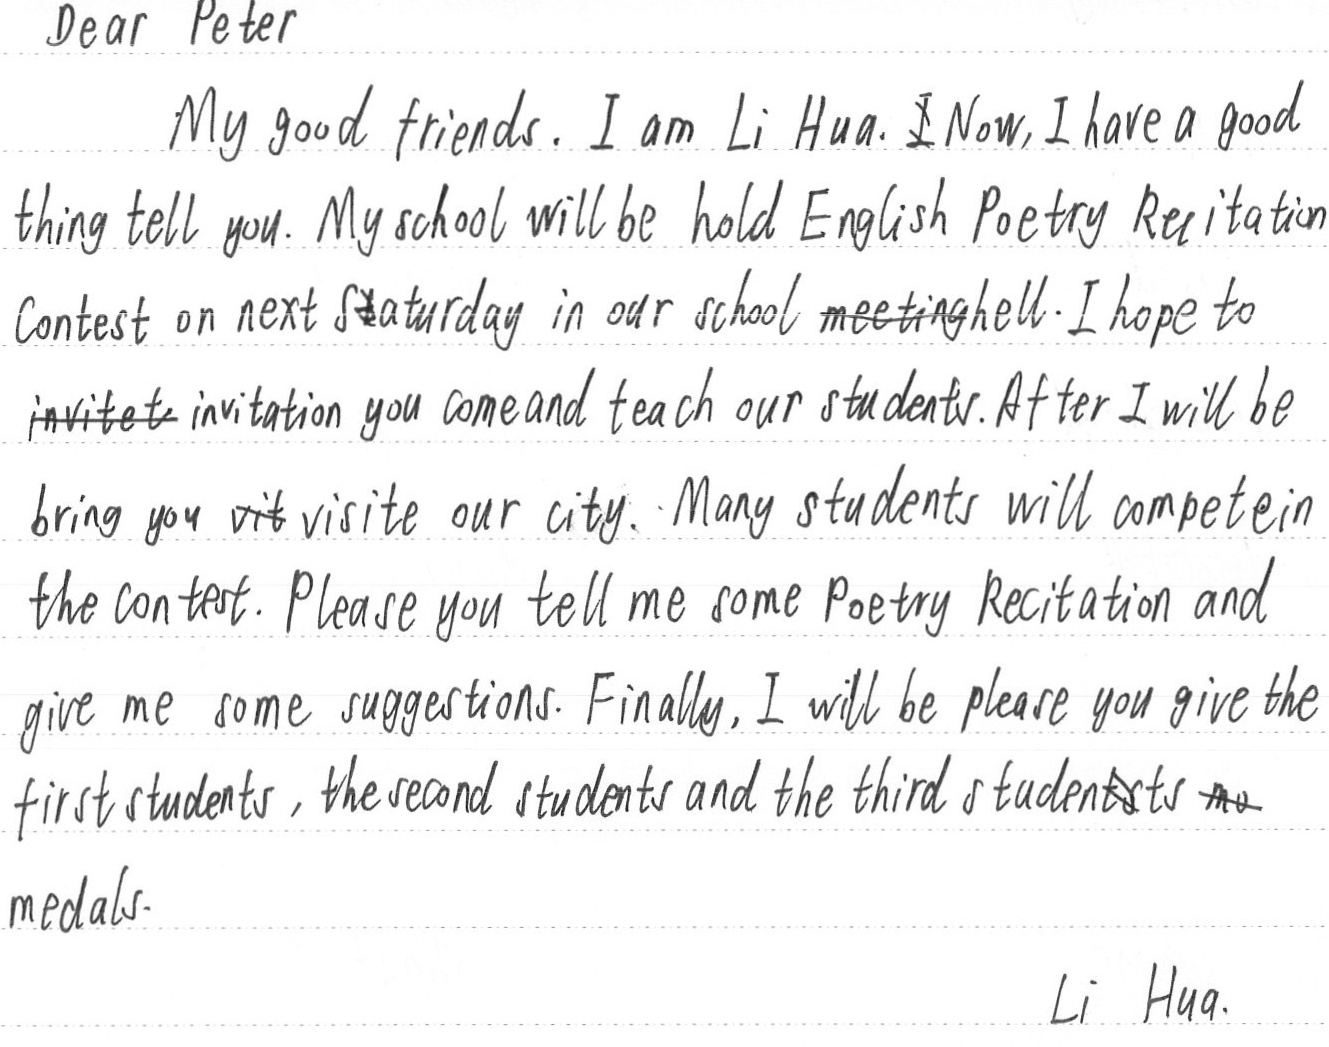 Dear Peter
My good friends. I am Li Hua. Now, I have a good
thing tell you. My school will be hold English Poetry Recitation
Contest on next Saturday in our school hell. I hope to
invitation you come and teach our students. After I will be
bring you visite our city. Many students will compete in
the contest. Please you tell me some Poetry Recitation and
give me some suggestions. Finally, I will be please you give the
first students, the second students and the third students
medals.
Li Hua.